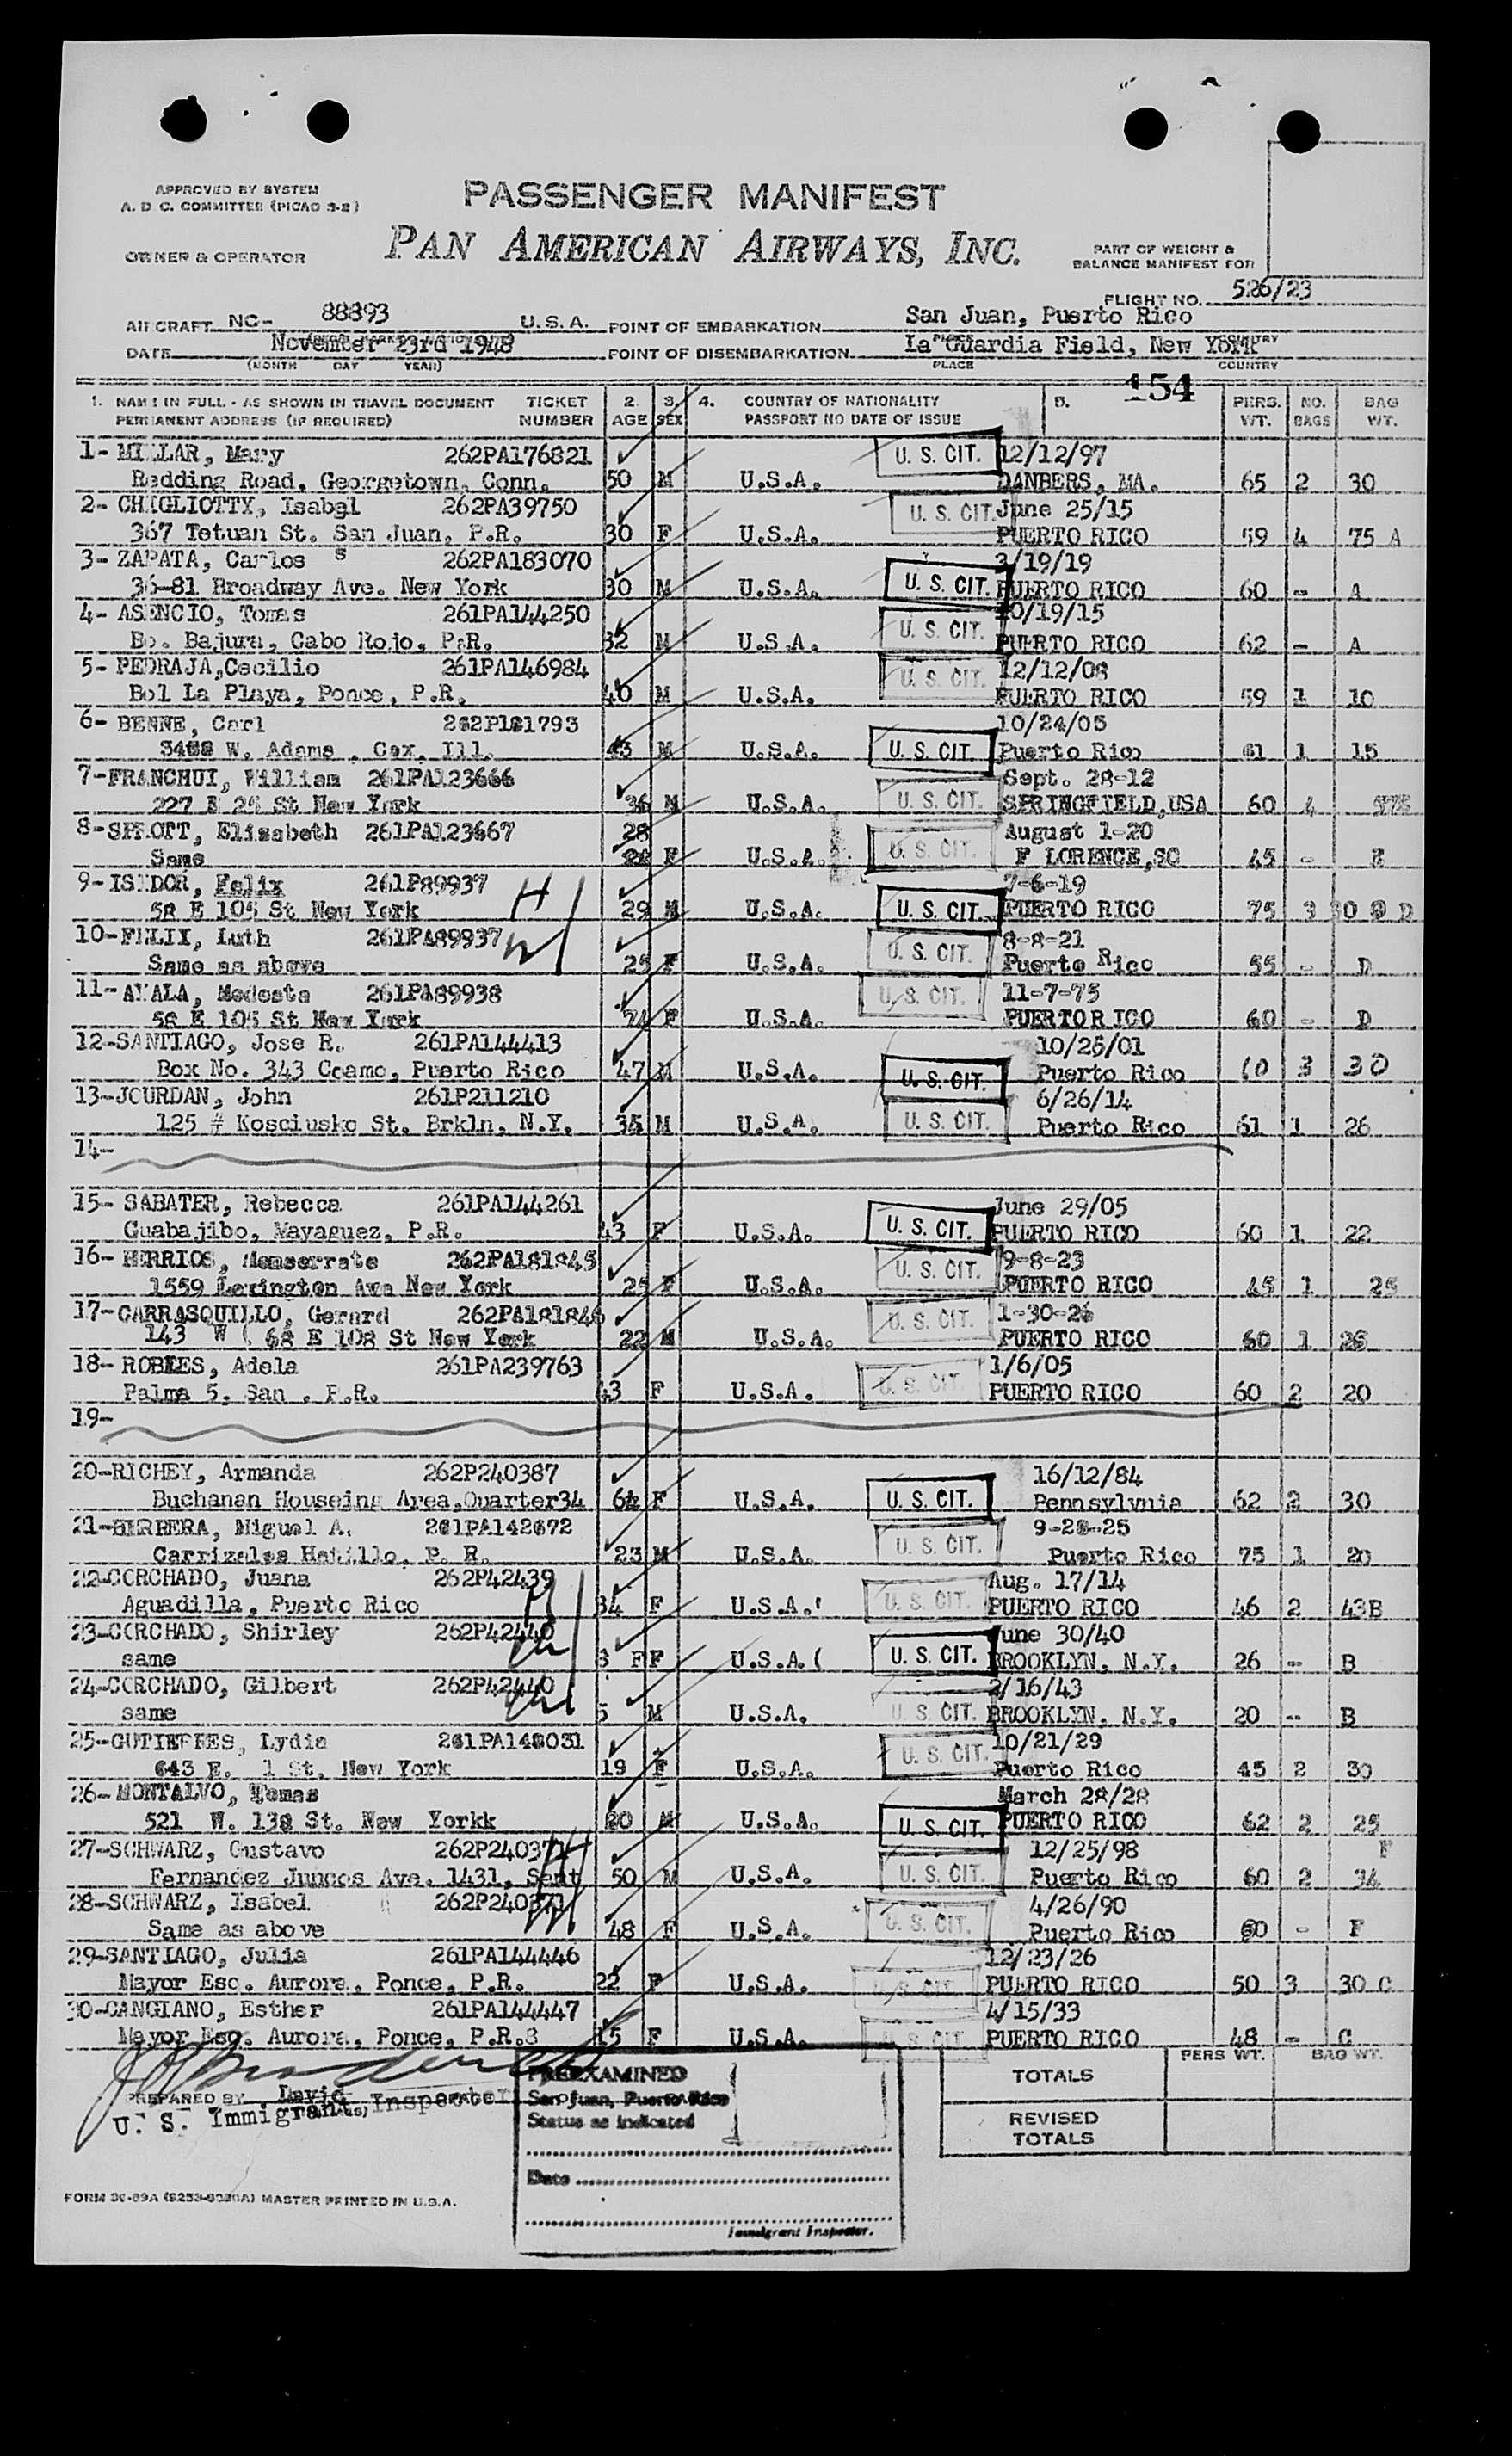 APPROVED BY SYSTEM
A. D C. COMMITTEE (PICAO 3-2)
PASSENGER MANIFEST
OWNER & OPERATOR
PAN AMERICAN AIRWAYS, INC.
PART OF WEIGHT &
BALANCE MANIFEST FOR
FLIGHT NO. 526/23
AIRCRAFT NC- 88893 U.S.A. POINT OF EMBARKATION San Juan, Puerto Rico
DATE November 23rd 1948 POINT OF DISEMBARKATION La Guardia Field, New York
(MONTH DAY YEAR) PLACE COUNTRY
154
1. NAME IN FULL - AS SHOWN IN TRAVEL DOCUMENT TICKET 2. 3. 4. COUNTRY OF NATIONALITY 5. PERS. NO. BAG
PERMANENT ADDRESS (IF REQUIRED) NUMBER AGE SEX PASSPORT NO DATE OF ISSUE WT. BAGS WT.
1- MILLAR, Mary 262PA176821 U. S. CIT. 12/12/97
Redding Road, Georgetown, Conn. 50 M U.S.A. DANBERS, MA. 65 2 30
2- CHIGLIOTTY, Isabel 262PA39750 U. S. CIT. June 25/15
367 Tetuan St. San Juan, P.R. 30 F U.S.A. PUERTO RICO 59 4 75 A
3- ZAPATA, Carlos S 262PA183070 /19/19
36-81 Broadway Ave. New York 30 M U.S.A. U. S. CIT. PUERTO RICO 60 - A
4- ASENCIO, Tomas 261PA144250 10/19/15
Bo. Bajura, Cabo Rojo, P.R. 32 M U.S.A. U. S. CIT. PUERTO RICO 62 - A
5- PEDRAJA,Cecilio 261PA146984 U. S. CIT. 12/12/08
Bol La Playa, Ponce, P.R. 40 M U.S.A. PUERTO RICO 59 1 10
6- BENNE, Carl 10/24/05
W. Adams , Cex, Ill. 43 M U.S.A. U. S. CIT. Puerto Rico 61 1 15
7-FRANCHUI, William 261PA123666 Sept. 28-12
227 E 25 St New York 36 M U.S.A. U. S. CIT. SPRINGFIELD,USA 60 4
8-SPROTT, Elizabeth 261PA123667 28 August 1-20
Same F U.S.A. U. S. CIT. F LORENCE,SC 45 - E
9-ISIDOR, Felix 261P89937 H 7-6-19
58 E 105 St New York 29 M U.S.A. U. S. CIT. PUERTO RICO 75 3 D
10-FELIX, Luth 261PA89937 W 8-8-21
Same as above 25 F U.S.A. U. S. CIT. Puerto Rico 55 - D
11-AYALA, Modesta 261PA89938 11-7-75
58 E 105 St New York 74 F U.S.A. U. S. CIT. PUERTORICO 60 - D
12-SANTIAGO, Jose R. 261PA144413 10/25/01
Box No. 343 Coamo, Puerto Rico 47 M U.S.A. U. S. CIT. Puerto Rico 60 3 30
13-JOURDAN, John 261P211210 6/26/14
125 # Kosciusko St. Brkln, N.Y. 34 M U.S.A. U. S. CIT. Puerto Rico 61 1 26
14-
15- SABATER, Rebecca 261PA144261 June 29/05
Guabajibo, Mayaguez, P.R. 43 F U.S.A. U. S. CIT. PUERTO RICO 60 1 22
16- BERRIOS, Monserrate 262PA181845 9-8-23
1559 Lexington Ave New York 25 F U.S.A. U. S. CIT. PUERTO RICO 45 1 25
17-CARRASQUILLO, Gerard 262PA181846 1-30-26
143 W ( 68 E 108 St New York 22 M U.S.A. U. S. CIT. PUERTO RICO 60 1 26
18- ROBLES, Adela 261PA239763 1/6/05
Palma 5, San . P.R. 43 F U.S.A. U. S. CIT. PUERTO RICO 60 2 20
19-
20-RICHEY, Armanda 262P240387 16/12/84
Buchanan Houseing Area,Quarter34 64 F U.S.A. U. S. CIT. Pennsylvnia 62 2 30
21-BERBERA, Miguel A. 261PA142672 9-28-25
Carrizales Hatillo, P. R. 23 M U.S.A. U. S. CIT. Puerto Rico 75 1 20
22-CORCHADO, Juana 262P42439 Aug. 17/14
Aguadilla, Puerto Rico 34 F U.S.A. U. S. CIT. PUERTO RICO 46 2 43B
23-CORCHADO, Shirley 262P42440 June 30/40
same 8 F F U.S.A. ( U. S. CIT. BROOKLYN, N.Y. 26 -- B
24-CORCHADO, Gilbert 262P42440 2/16/43
same 5 M U.S.A. U. S. CIT. BROOKLYN, N.Y. 20 -- B
25-GUTIERRES, Lydia 261PA148031 10/21/29
643 E. 1 St. New York 19 F U.S.A. U. S. CIT. Puerto Rico 45 2 30
26-MONTALVO, Tomas March 28/28
521 W. 138 St. New Yorkk 20 M U.S.A. U. S. CIT. PUERTO RICO 62 2 25
27-SCHWARZ, Gustavo 262P24037 12/25/98 F
Fernandez Juncos Ave. 1431, Sant 50 M U.S.A. U. S. CIT. Puerto Rico 60 2 34
28-SCHWARZ, Isabel 262P240371 4/26/90
Same as above 48 F U.S.A. U. S. CIT. Puerto Rico 60 - F
29-SANTIAGO, Julia 261PA144446 12/23/26
Mayor Esq. Aurora, Ponce, P.R. 22 F U.S.A. U. S. CIT. PUERTO RICO 50 3 30 C
30-CANGIANO, Esther 261PA144447 4/15/33
Mayor Esq. Aurora, Ponce, P.R.8 15 F U.S.A. U. S. CIT. PUERTO RICO 48 - C
PERS WT. BAG WT.
TOTALS
REVISED
TOTALS
PREPARED BY David
U. S. Immigrant Inspector
PREEXAMINED
San Juan, Puerto Rico
Status as indicated
Date
Immigrant Inspector.
FORM 30-89A MASTER PRINTED IN U.S.A.